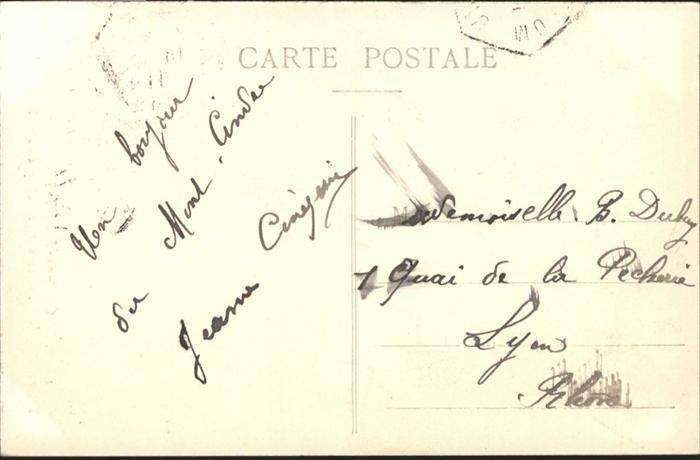 CARTE POSTALE
Un bonjour
du Mont Cindre
Jeanne
Mademoiselle B.
1 Quai de la Pêcherie
Lyon
Rhône